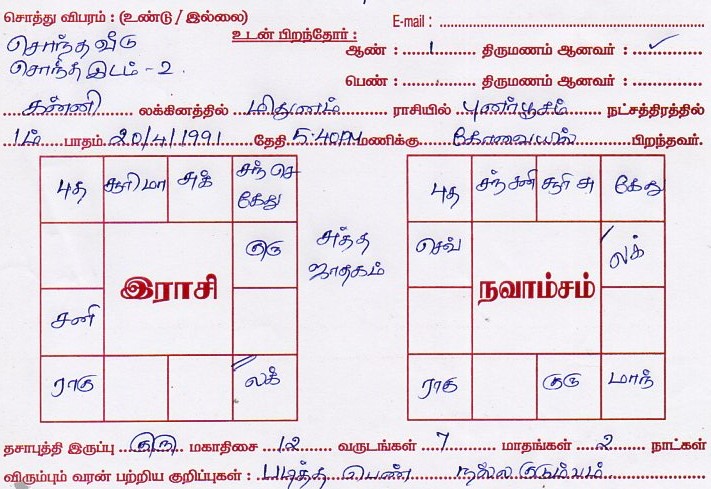 சொத்து விபரம் : (உண்டு / இல்லை) E-mail :
சொந்த வீடு உடன் பிறந்தோர் : ஆண் : 1 திருமணம் ஆனவர் : ✓
சொந்த இடம் - 2. பெண் : திருமணம் ஆனவர் :
கன்னி லக்கினத்தில் மிதுனம் ராசியில் புணர்பூசம் நட்சத்திரத்தில்
1ம் பாதம் 20/4/1991 தேதி 5:40PM மணிக்கு கோவையில் பிறந்தவர்.
புத சூரி மா சுக் சந் செ கேது
புத சந் சனி சூரி சு கேது
குரு
சுத்த ஜாதகம்
செவ் லக்
இராசி
நவாம்சம்
சனி
ராகு லக்
ராகு குரு மாந்
தசாபுத்தி இருப்பு குரு மகாதிசை 12 வருடங்கள் 7 மாதங்கள் 2 நாட்கள்
விரும்பும் வரன் பற்றிய குறிப்புகள் : படித்த பெண் நல்ல குடும்பம்